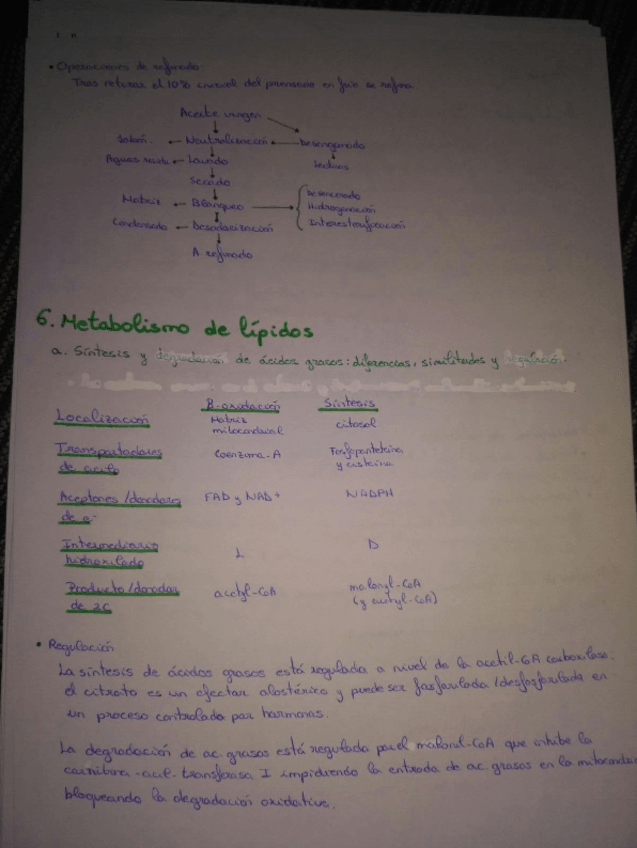 • Operaciones de refinado:
Tras retirar el 10% del prensado en frío se refina.
Aceite virgen
Jabón. ← Neutralización ← Desengomado
Aguas ← Lavado Lecitinas
Secado
Matriz ← Blanqueo → Desencerado
Hidrogenación
Condensado ← Desodorización Interesterificación
A refinado
6. Metabolismo de lípidos
a. Síntesis y degradación de ácidos grasos: diferencias, similitudes y regulación.
B-oxidación Síntesis
Localización Matriz mitocondrial citosol
Transportadores de acilo Coenzima-A Fosfopanteteina y cisteina
Aceptores/donadores de e- FAD y NAD+ NADPH
Intermediario hidroxilado L D
Producto/donador de 2C acetyl-CoA malonyl-CoA (y acetyl-CoA)
• Regulación
La síntesis de ácidos grasos está regulada a nivel de la acetil-CoA carboxilasa.
el citrato es un efector alostérico y puede ser fosforilada/desfosforilada en
un proceso controlado por hormonas.
La degradación de ac. grasos está regulada por el malonil-CoA que inhibe la
carnitina-acil-transferasa I impidiendo la entrada de ac. grasos en la mitocondria
bloqueando la degradación oxidativa.